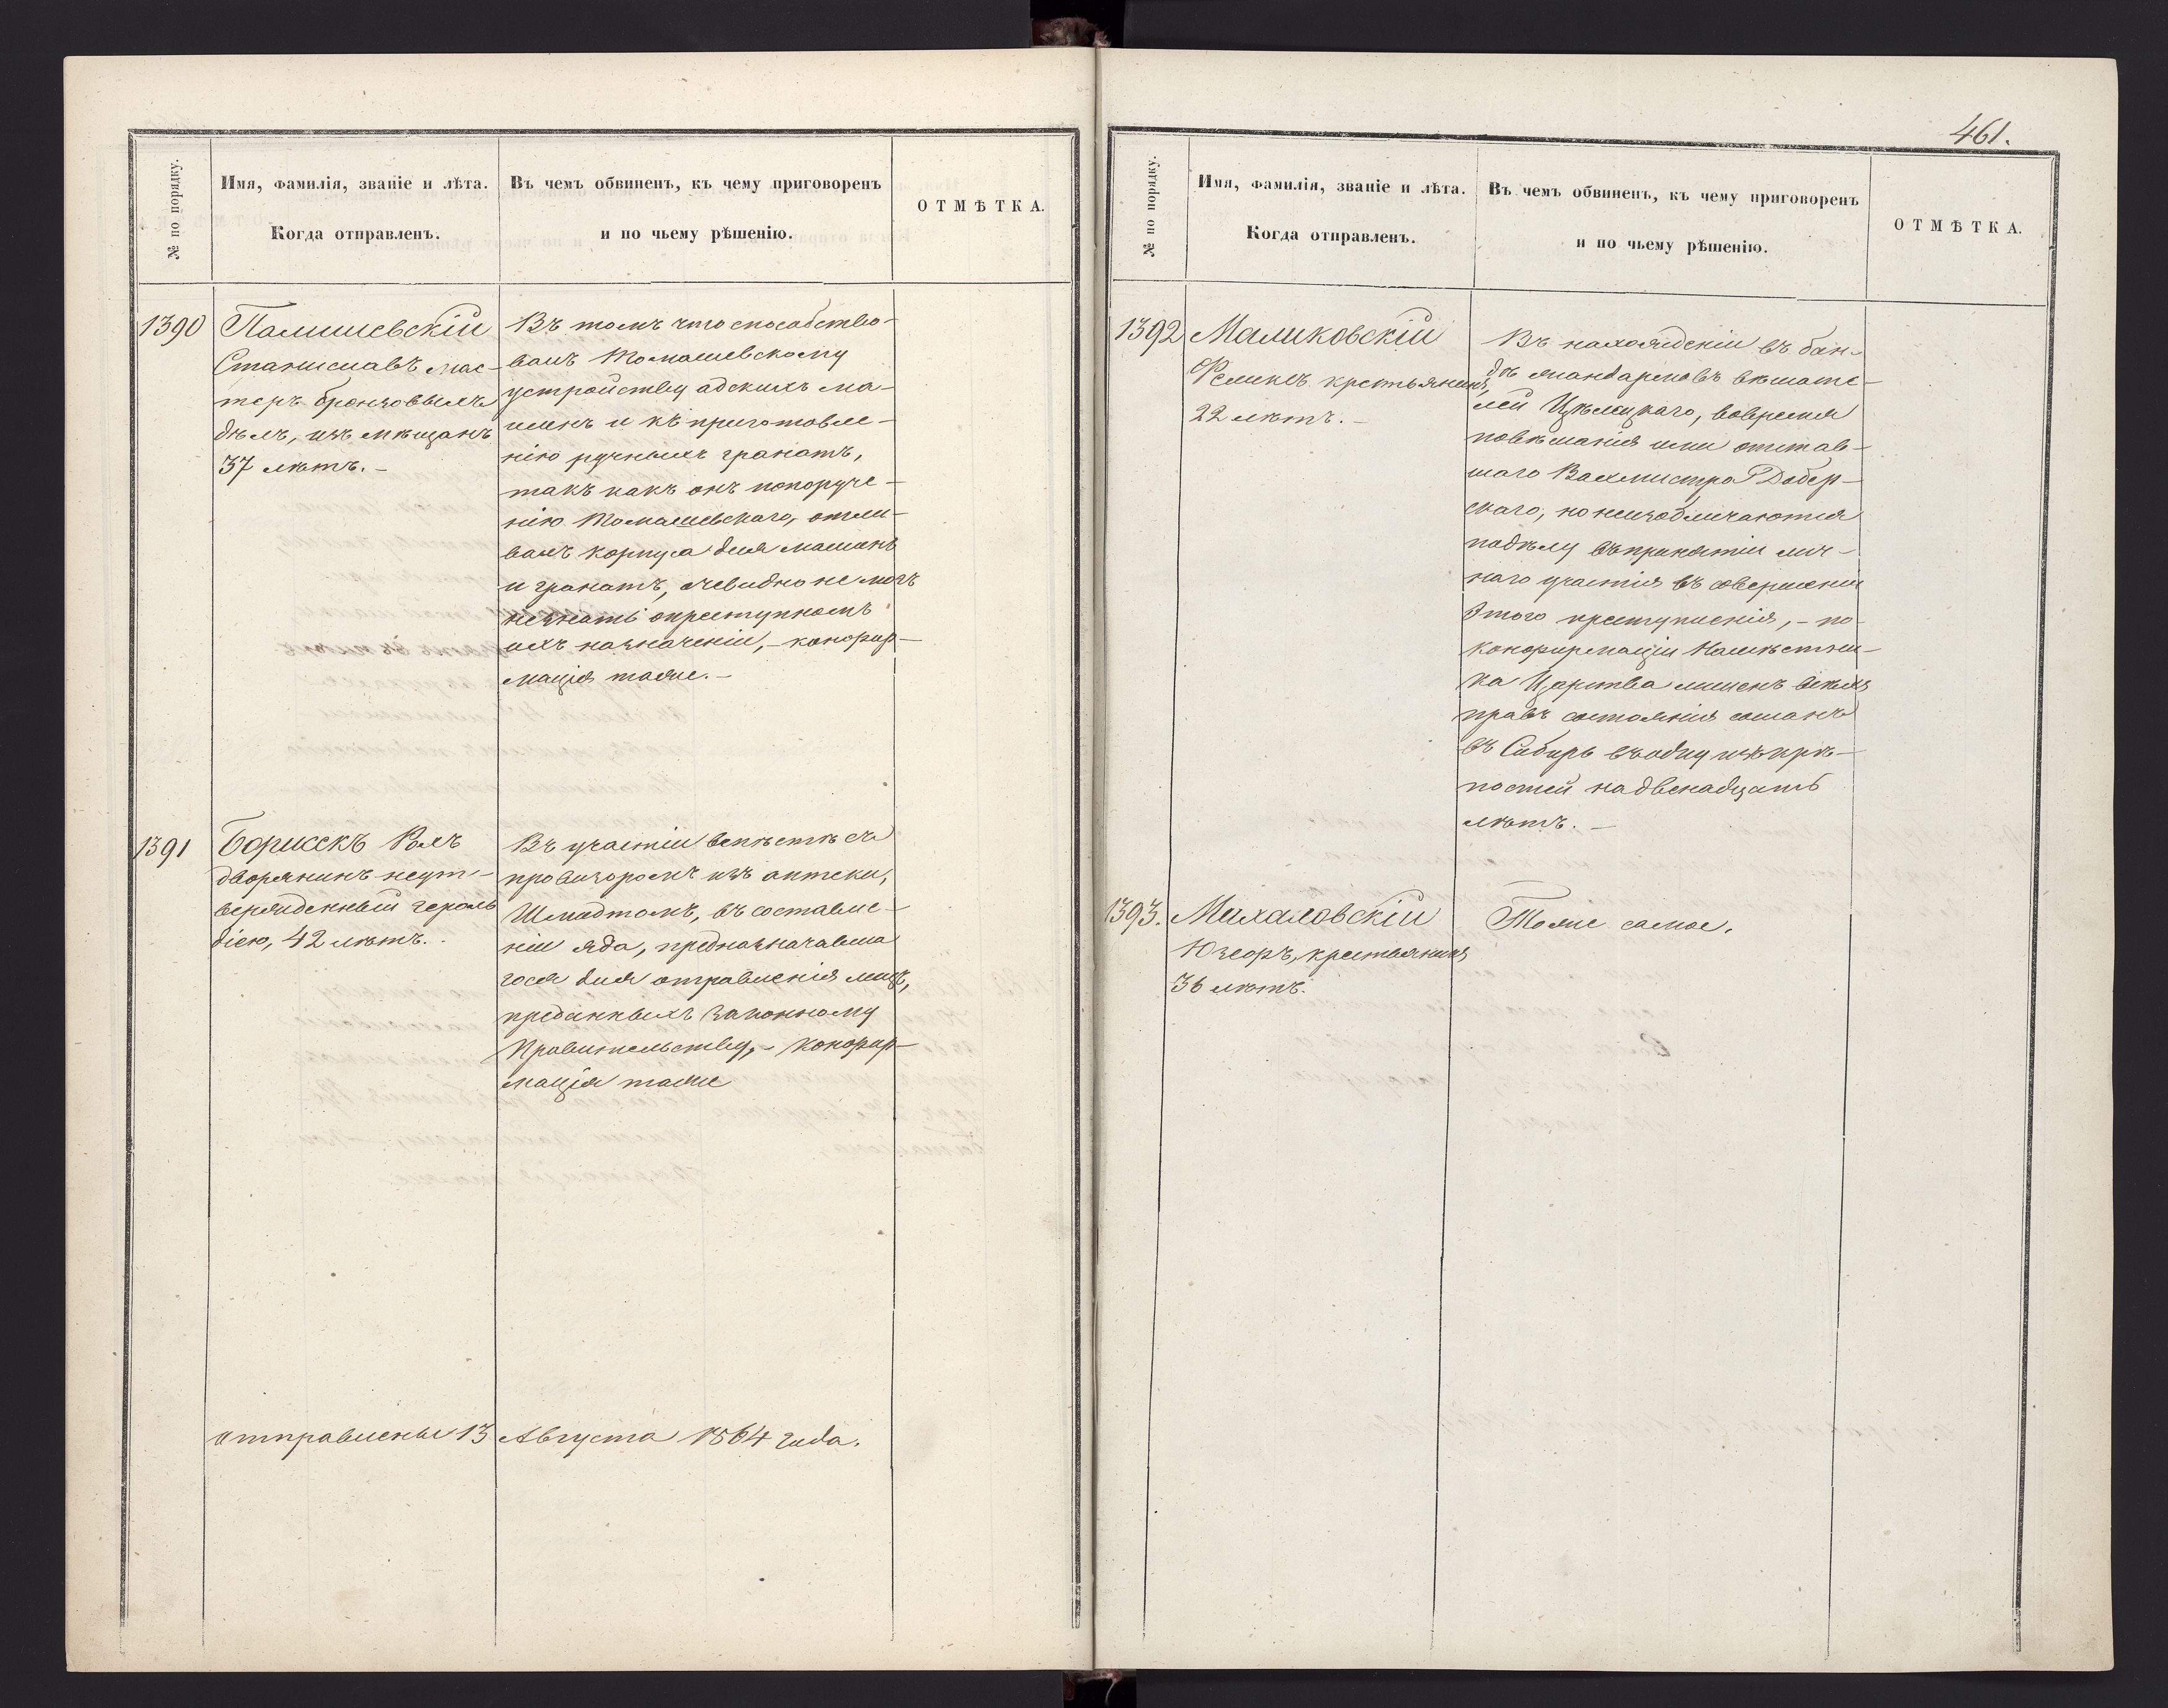 № по порядку.
Имя, фамилія, званіе и лѣта.
Когда отправленъ.
Въ чемъ обвиненъ, къ чему приговоренъ
и по чьему рѣшенію.
ОТМѢТКА.
1390
Палишевскій
Станиславъ мас-
теръ бронзовыхъ
дѣлъ, изъ мѣщанъ
37 лѣтъ. -
Въ томъ что способство-
валъ Томашевскому
устройству адскихъ ма-
шинъ и къ приготовле-
нію ручныхъ гранатъ,
такъ какъ онъ попоруче-
нію Томашевскаго, отли-
валъ корпуса для машинъ
и гранатъ, очевидно не могъ
незнать опреступномъ
ихъ назначеніи, - конфир-
мація таже. -
1391
Борисекъ Рохъ
дворянинъ неут-
вержденный героль
діею, 42 лѣтъ.
Въ участіи вмѣстѣ съ
провизоромъ изъ аптеки,
Шмидтомъ, въ составле-
ніи яда, предназначавша
гося для отравленія лицъ,
преданныхъ законному
Правительству, - конфир-
мація таже
отправлены 13 Августа 1864 года.
461.
№ по порядку.
Имя, фамилія, званіе и лѣта.
Когда отправленъ.
Въ чемъ обвиненъ, къ чему приговоренъ
и по чьему рѣшенію.
ОТМѢТКА.
1392
Маликовскій
Феликсъ крестьянинъ,
22 лѣтъ. -
Въ нахожденіи въ бан-
дѣ жандармовъ вѣшате-
лей Цѣлецкаго, вовремя
повѣшанія ими отстав-
наго Вахмистра Добер-
скаго, но неизобличаются
подѣлу въпринятіи лич-
наго участія въ совершеніи
этого преступленія, - по
конфирмаціи Намѣстни-
ка Царства лишенъ всѣхъ
правъ состоянія сосланъ
въ Сибирь въодну изъ крѣ-
постей надвенадцать
лѣтъ. -
1393.
Михаловскій
Юзефъ, крестьянинъ
36 лѣтъ.
Тоже самое.